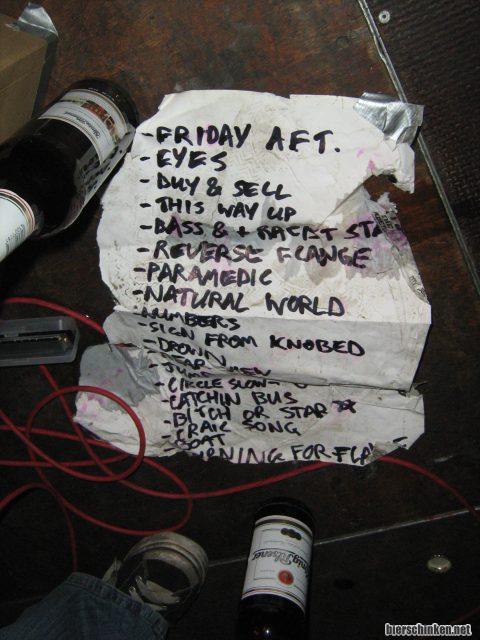 -FRIDAY AFT.
-EYES
-BUY & SELL
-THIS WAY UP
-BASS &
-REVERSE FLANGE
-PARAMEDIC
-NATURAL WORLD
NUMBERS
-SIGN FROM KNOBED
-DROWN
-CIRCLE SLOW-
-CATCHIN BUS
-BITCH OR STAR
-CRAIC SONG
-GOAT
FOR
Pilsener
bierschinken.net